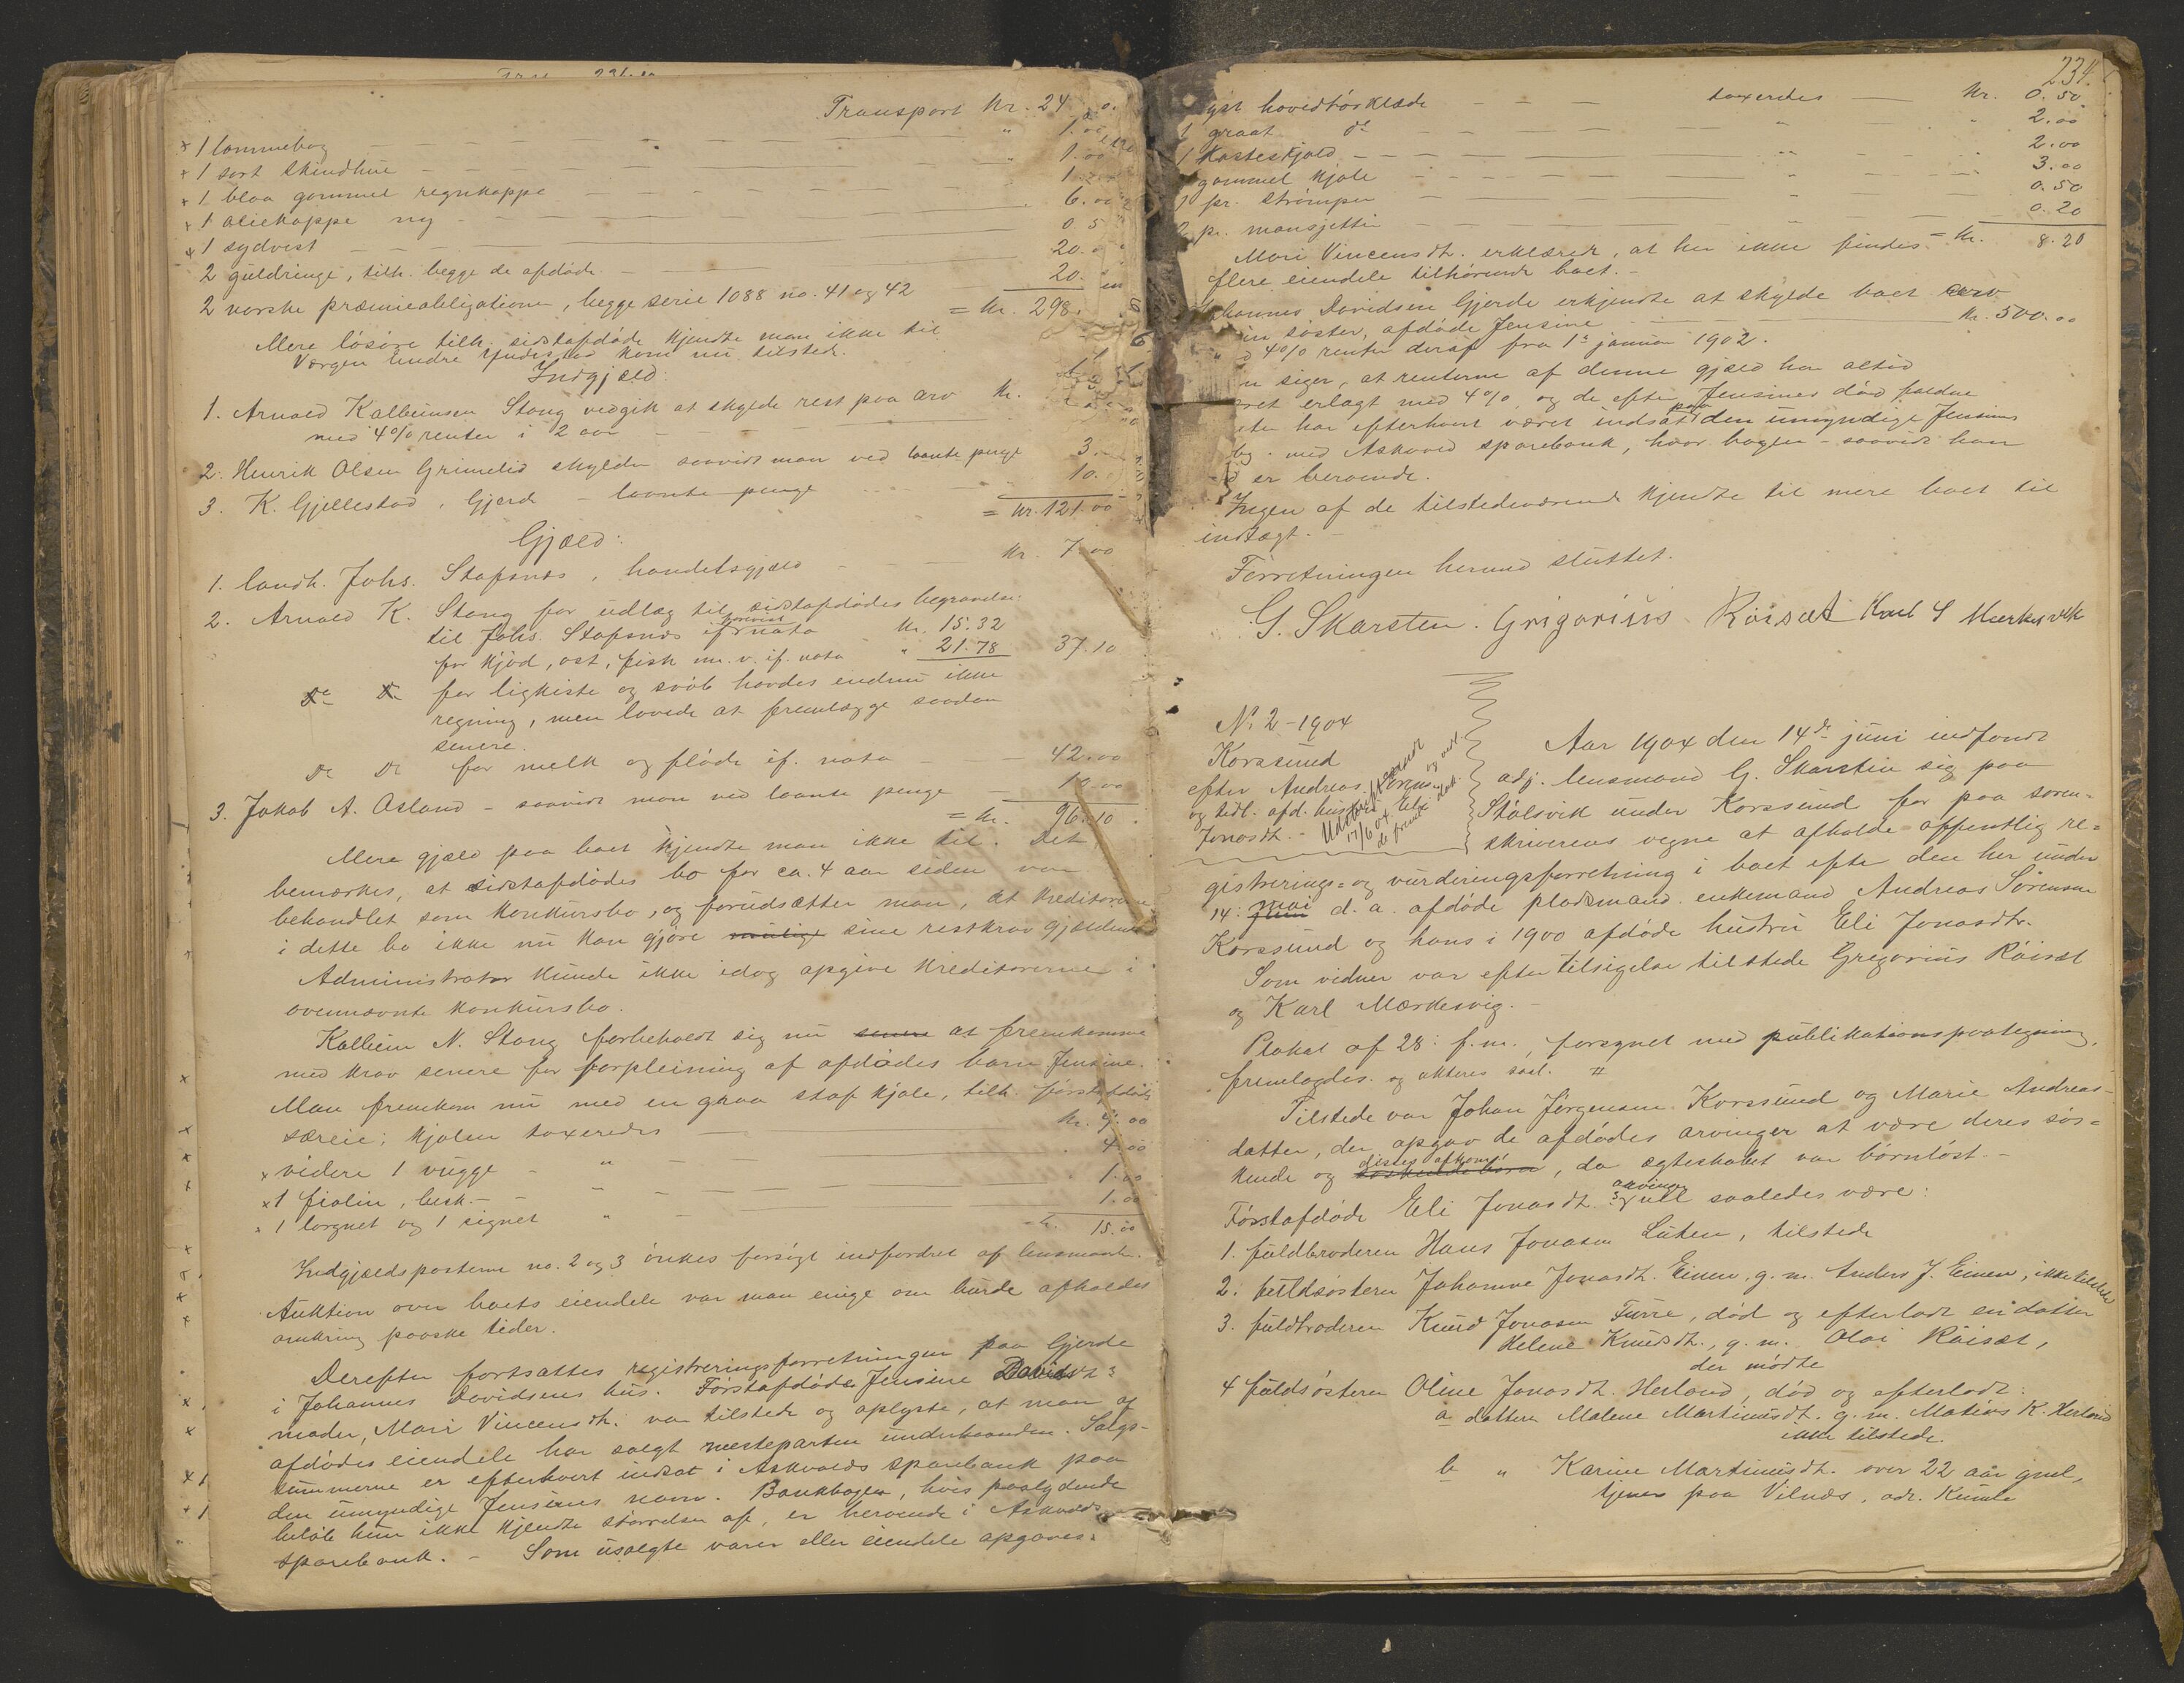 Transport Kr. 24
× 1 lommebog — — — " 1.00
× 1 sort skindhue — — — " 1.00
× 1 blaa gammel regnkappe — — —
× 1 oliekappe ny — — — 6.00
× 1 sydvest — — — 0.5
2 guldringe, tilh. begge de afdøde — — 20.
2 norske præmieobligationer, begge serie 1088 no. 41 og 42 20.
= Kr. 298.
Mere løsøre tilh. sidstafdøde kjendte man ikke til
Værgen Endre kom nu tilstede.
Indgjæld:
1. Arnold Kalleinsen Stang vedgik at skylde rest paa arv Kr.
med 4% renter i 2 aar — —
2. Henrik Olsen Grimelid skylder saavidt man ved laante penge 3.
3. K. Gjellestad, Gjerd — laante penge 10.
= Kr. 121.00
Gjæld:
1. landh. Johs. Stapsnes, handelsgjæld — — Kr. 7.00
2. Arnold K. Stang for udlæg til sidstafdødes begravelse:
til Johs. Stapsnes if. nota Kr. 15.32
for kjød, ost, fisk m.v. if. nota " 21.78 37.10
Do Do for ligkiste og svøb havdes endnu ikke
regning, men lovede at fremlægge saadan
senere.
Do Do for melk og fløde if. nota — — 42.00
3. Jakob A. Osland — saavidt man ved laante penge — 10.00
= Kr. 96.10
Mere gjæld paa boet kjendte man ikke til. Det
bemærkes, at sidstafdødes bo for ca. 4 aar siden var
behandlet som konkursbo, og forudsætter man, at kreditorerne
i dette bo ikke nu kan gjøre sine restkrav gjældende
Administrator kunde ikke idag opgive kreditorerne i
ovennævnte konkursbo.
Kallein N. Stang forbeholdt sig nu senere at fremkomme
med krav senere for forpleining af afdødes barn Jensine.
Man fremkom nu med en graa stof kjole, tilh. førstafdøde
særeie; kjolen taxeredes — Kr. 9.00
× videre 1 vugge — " — 4.00
× 1 fiolin, besk. — " — 1.00
× 1 lorgnet og 1 signet " — 1.00
Kr. 15.00
Indgjældsposterne no. 2 og 3 ønkes forsøgt indfordret af lensmanden.
Auktion over boets eiendele var man enige om burde afholdes
omkring paaske tider.
Derefter fortsattes registreringsforretningen paa Gjerde
i Johannes Davidsens hus. Førstafdøde Jensine Davidsdt:
moder, Mari Vincensdt. var tilstede og oplyste, at man af
afdødes eiendele har solgt mesteparten underhaanden. Salgs-
summerne er efterhvert indsat i Askvolds sparebank paa
den umyndige Jensines navn. Bankbogen, hvis paalydende
beløb hun ikke kjendte størrelsen af, er beroende i Askvolds
sparebank. — Som usolgte varer eller eiendele opgaves:
234.
lyst hovedtørklæde — — — taxeredes — Kr. 0.50
1 graat do — — — " 2.00
1 Kasteskjold — — — " 2.00
1 gammel kjole — — — " 3.00
1 pr. strømper — — — " 0.50
2 pr. mansjetter — — — " 0.20
= Kr. 8.20
Mari Vincensdt. erklærede, at her ikke findes
flere eiendele tilhørende boet. —
Johannes Davidsen Gjerde erkjendte at skylde boet arv
sin søster, afdøde Jensine — — Kr. 500.00
4% renter deraf fra 1ste januar 1902.
siger, at renterne af denne gjæld har altid
været erlagt med 4%, og de efter Jensines død faldne
har efterhvert været indsat paa den umyndige Jensines
bog med Askvold sparebank, hvor bogen — saavidt han
er beroende.
Ingen af de tilstedeværende kjendte til mere boet til
indtægt. —
Forretningen hermed sluttet.
G. Skarstein. Grigorius Röisæt Karl S Mærkesvik
No. 2 – 1904
Korssund
efter Andreas Sørens.
og tidl. afd. hustru Eli
Jonasdt. —
Udskrift
17/6 04
Aar 1904 den 14de juni indfandt
adj. lensmand G. Skarstein sig paa
Stølsvik under Korssund for paa soren-
skriverens vegne at afholde offentlig re-
gistrerings- og vurderingsforretning i boet efter den her under
14: mai d. a. afdøde pladsmand enkemand Andreas Sørensen
Korssund og hans i 1900 afdøde hustru Eli Jonasdt.
Som vidner var efter tilsigelse tilstede Gregorius Röisæt
og Karl Mærkesvig. —
Plakat af 28: f.m., forsynet med publikationspaategning,
fremlagdes og akteres saal. "
Tilstede var Johan Jørgensen Korssund og Marie Andreas-
datter, der opgav de afdødes arvinger at være deres søs-
kende og disses afkom, da ægteskabet var børnløst. —
Førstafdøde Eli Jonasdt.s arvinger skal saaledes være:
1. fuldbroderen Hans Jonasen Luten, tilstede
2. fuldsøsteren Johanne Jonasdt. Einen, g. m. Anders J. Einen, ikke tilstede
3. fuldbroderen Knud Jonasen Furre, død og efterladt en datter
Helene Knudsdt., g. m. Olai Röisæt,
der mødte
4 fuldsøsteren Oline Jonasdt. Herland, død og efterladt:
a datteren Malene Martinusdt. g. m. Matias K. Herland
ikke tilstede.
b " Karine Martinusdt. over 22 aar gml,
tjener paa Vilnes, adr.